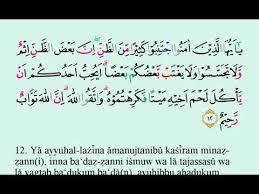 يٰٓاَيُّهَا الَّذِيْنَ اٰمَنُوا اجْتَنِبُوْا كَثِيْرًا مِّنَ الظَّنِّۖ اِنَّ بَعْضَ الظَّنِّ اِثْمٌ
وَّلَا تَجَسَّسُوْا وَلَا يَغْتَبْ بَّعْضُكُمْ بَعْضًاۗ اَيُحِبُّ اَحَدُكُمْ اَنْ
يَّأْكُلَ لَحْمَ اَخِيْهِ مَيْتًا فَكَرِهْتُمُوْهُۗ وَاتَّقُوا اللّٰهَۗ اِنَّ اللّٰهَ تَوَّابٌ
رَّحِيْمٌ ١٢
12. Yā ayyuhal-lażīna āmanujtanibū kaṡīram minaẓ-
ẓann(i), inna ba‘daẓ-ẓanni iṡmuw wa lā tajassasū wa
lā yagtab ba‘ḍukum ba‘ḍā(n), ayuḥibbu aḥadukum an